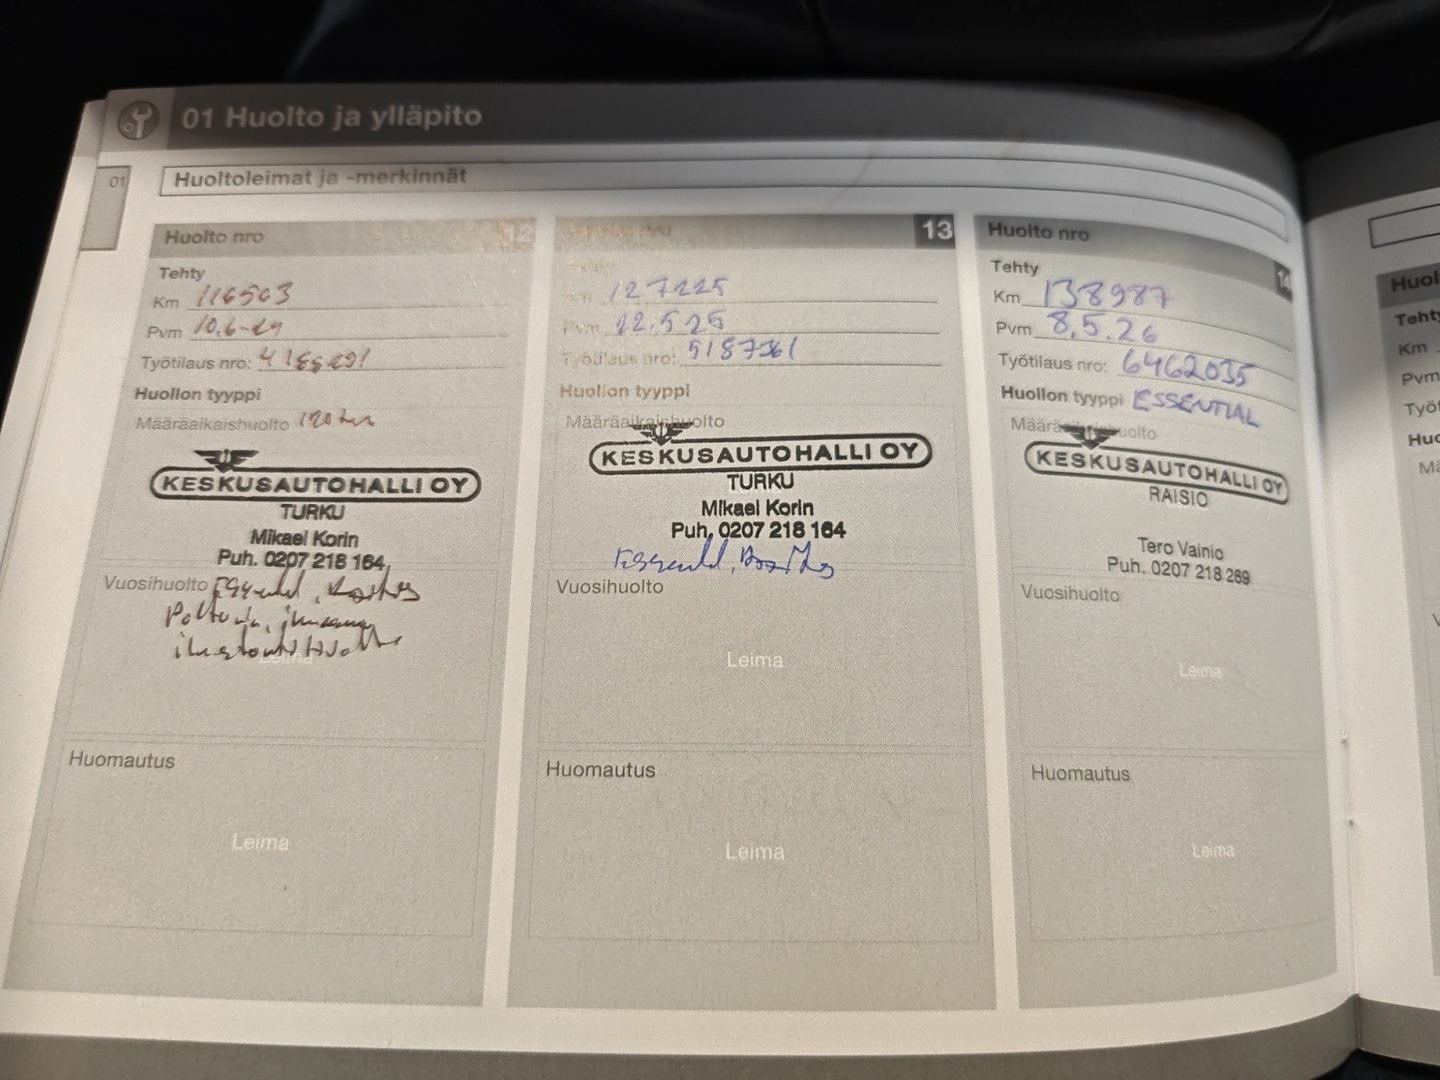 01 Huolto ja ylläpito
01
Huoltoleimat ja -merkinnät
Huolto nro 12
Tehty
Km 116503
Pvm 10.6-24
Työtilaus nro:
Huollon tyyppi
Määräaikaishuolto
KESKUSAUTOHALLI OY
TURKU
Mikael Korin
Puh. 0207 218 164
Vuosihuolto
Leima
Huomautus
Leima
13
Km 127225
Pvm 12.5 25
Työtilaus nro: 5187361
Huollon tyyppi
Määräaikaishuolto
KESKUSAUTOHALLI OY
TURKU
Mikael Korin
Puh. 0207 218 164
Vuosihuolto
Leima
Huomautus
Leima
Huolto nro 14
Tehty
Km 138987
Pvm 8.5.26
Työtilaus nro: 6462035
Huollon tyyppi ESSENTIAL
Määräaikaishuolto
KESKUSAUTOHALLI OY
RAISIO
Tero Vainio
Puh. 0207 218 269
Vuosihuolto
Leima
Huomautus
Leima
Tehty
Km
Pvm